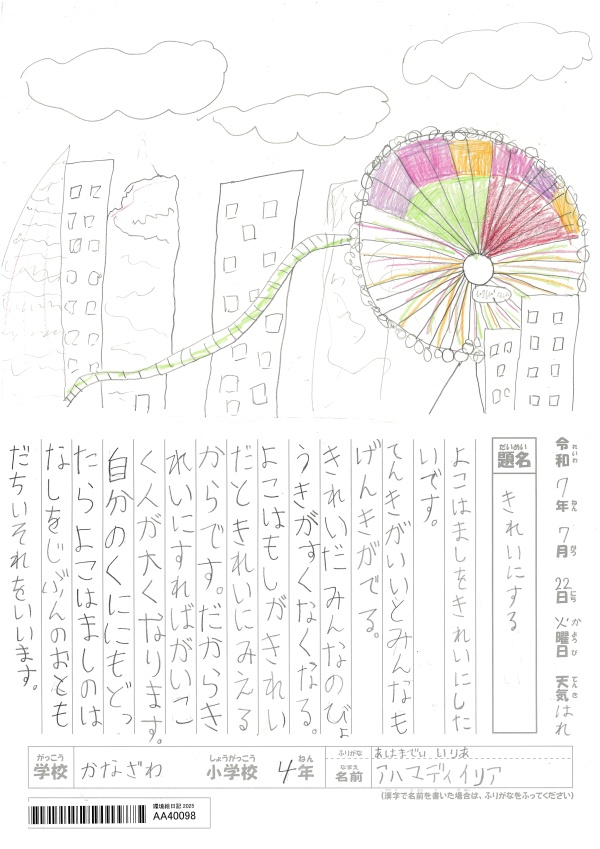 令和7年7月22日火曜日 天気はれ
れいわ ねん がつ にち かようび てんき
だいめい
題名 きれいにする
よこはましをきれいにした
いです。
てんきがいいとみんなも
げんきがでる。
きれいだみんなのびょ
うきがすくなくなる。
よこはもしがきれい
だときれいにみえる
からです。だからき
れいにすればがいこ
く人が大くなります。
自分のくににもどっ
たらよこはましのは
なしをじぶんのおとも
だちいそれをいいます。
がっこう しょうがっこう ねん
学校 かなざわ 小学校 4年
ふりがな あはまでぃ いりあ
なまえ
名前 アハマディイリア
(漢字で名前を書いた場合は、ふりがなをふってください)
環境絵日記 2025
AA40098